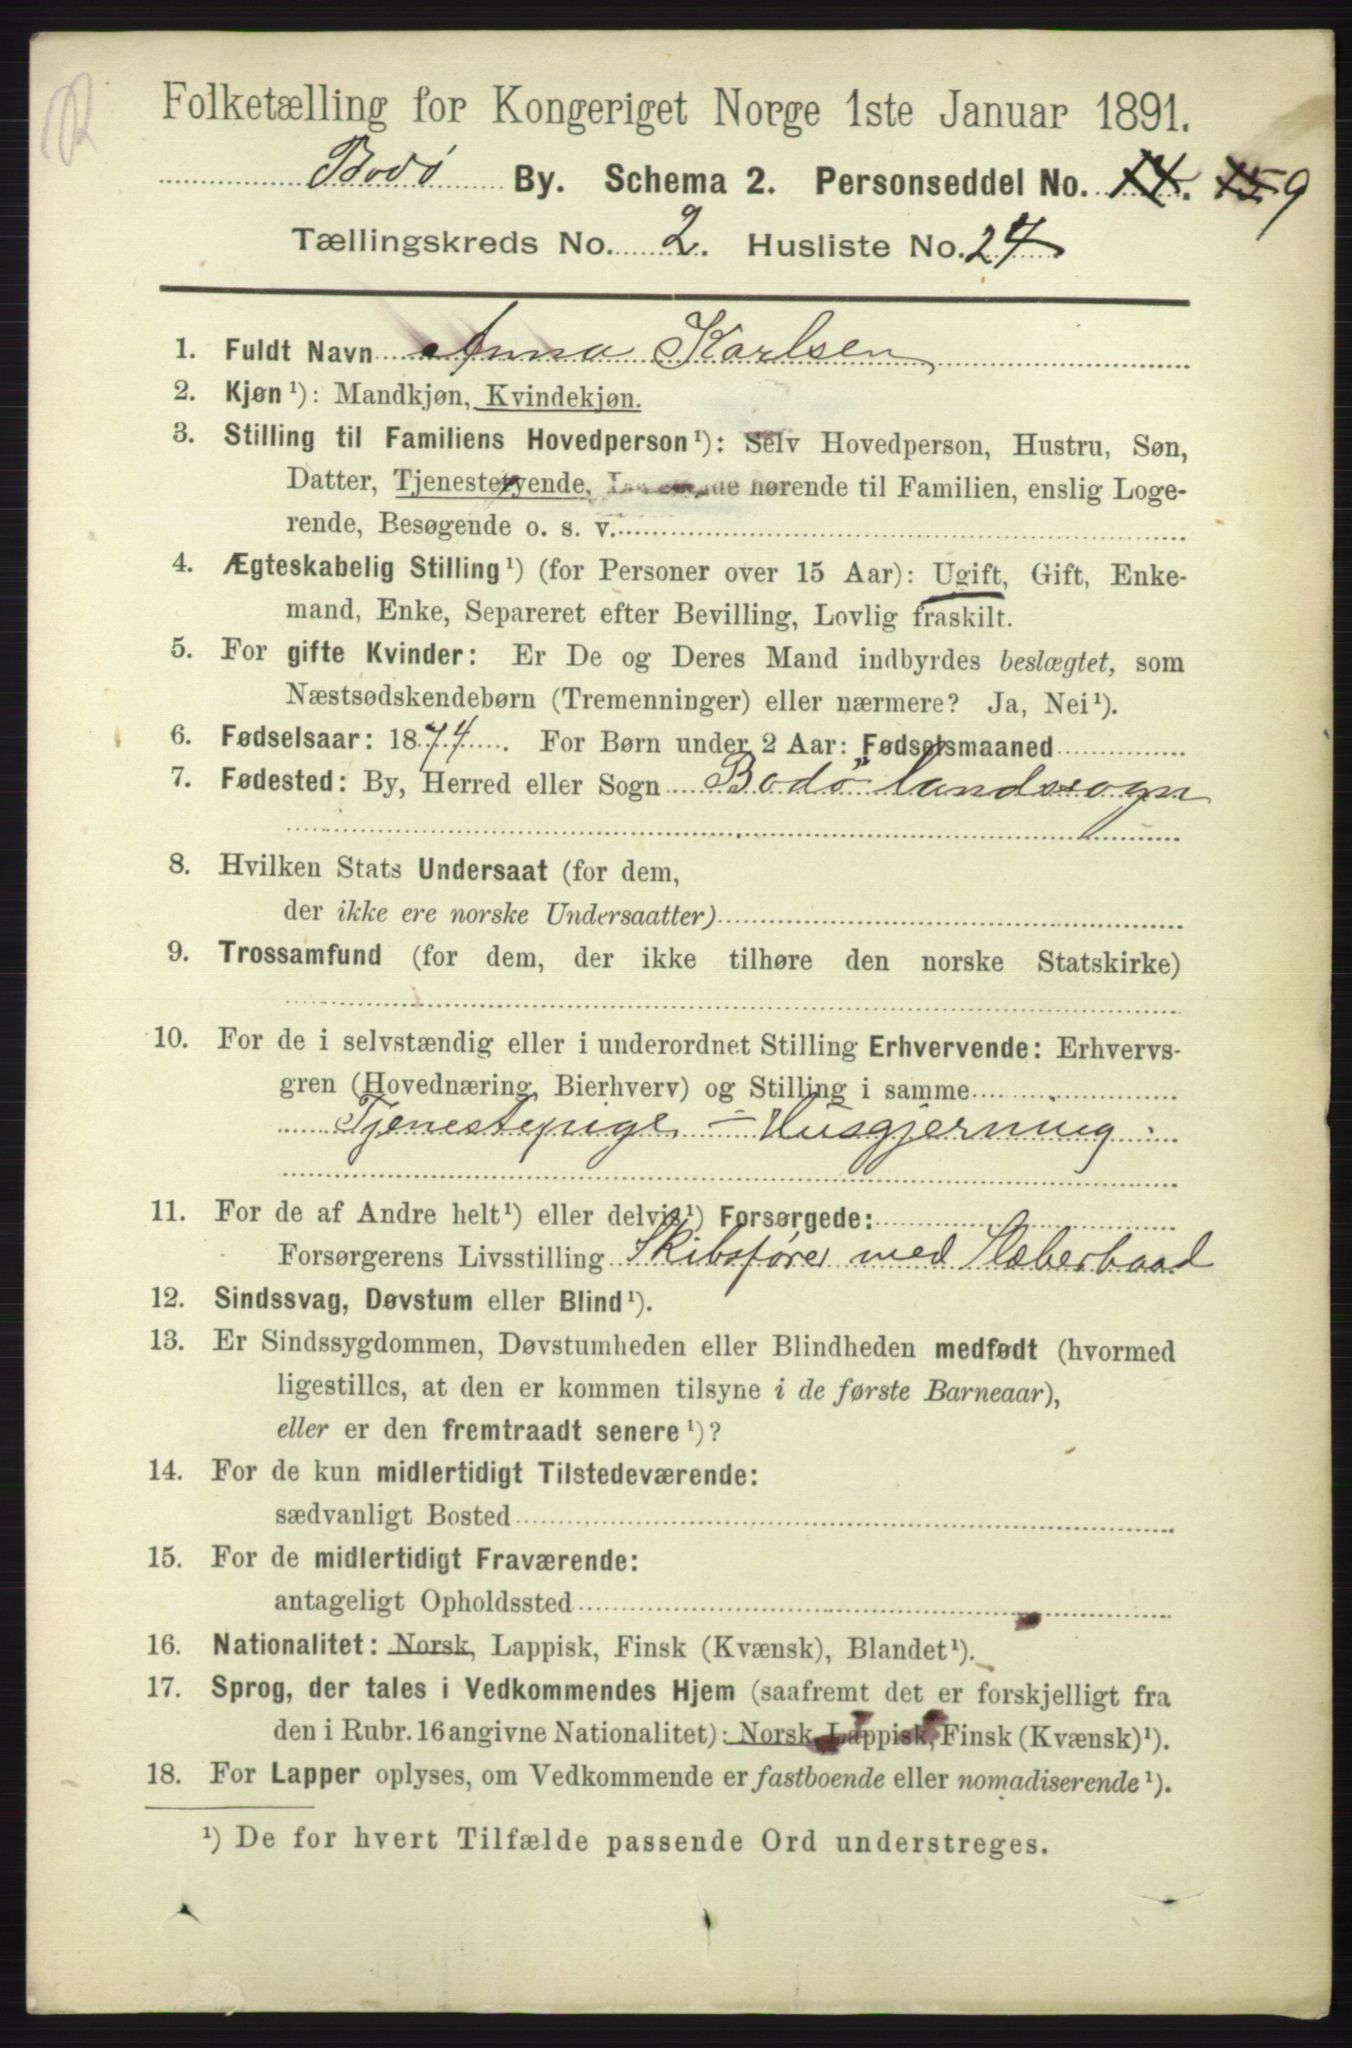 Folketælling for Kongeriget Norge 1ste Januar 1891.
Bodø By. Schema 2. Personseddel No. 14. 15 9
Tællingskreds No. 2. Husliste No. 24
1. Fuldt Navn Anna Karlsen
2. Kjøn¹): Mandkjøn, Kvindekjøn.
3. Stilling til Familiens Hovedperson¹): Selv Hovedperson, Hustru, Søn,
Datter, Tjenestetyende, hørende til Familien, enslig Loge-
rende, Besøgende o. s. v.
4. Ægteskabelig Stilling¹) (for Personer over 15 Aar): Ugift, Gift, Enke-
mand, Enke, Separeret efter Bevilling, Lovlig fraskilt.
5. For gifte Kvinder: Er De og Deres Mand indbyrdes beslægtet, som
Næstsødskendebørn (Tremenninger) eller nærmere? Ja, Nei¹).
6. Fødselsaar: 1874. For Børn under 2 Aar: Fødselsmaaned
7. Fødested: By, Herred eller Sogn Bodø landssogn
8. Hvilken Stats Undersaat (for dem,
der ikke ere norske Undersaatter)
9. Trossamfund (for dem, der ikke tilhøre den norske Statskirke)
10. For de i selvstændig eller i underordnet Stilling Erhvervende: Erhvervs-
gren (Hovednæring, Bierhverv) og Stilling i samme
Tjenestepige - Husgjerning
11. For de af Andre helt¹) eller delvis¹) Forsørgede:
Forsørgerens Livsstilling Skibsfører med Slæberbaad
12. Sindssvag, Døvstum eller Blind¹).
13. Er Sindssygdommen, Døvstumheden eller Blindheden medfødt (hvormed
ligestilles, at den er kommen tilsyne i de første Barneaar),
eller er den fremtraadt senere¹)?
14. For de kun midlertidigt Tilstedeværende:
sædvanligt Bosted
15. For de midlertidigt Fraværende:
antageligt Opholdssted
16. Nationalitet: Norsk, Lappisk, Finsk (Kvænsk), Blandet¹).
17. Sprog, der tales i Vedkommendes Hjem (saafremt det er forskjelligt fra
den i Rubr. 16 angivne Nationalitet): Norsk, Lappisk, Finsk (Kvænsk)¹).
18. For Lapper oplyses, om Vedkommende er fastboende eller nomadiserende¹).
¹) De for hvert Tilfælde passende Ord understreges.